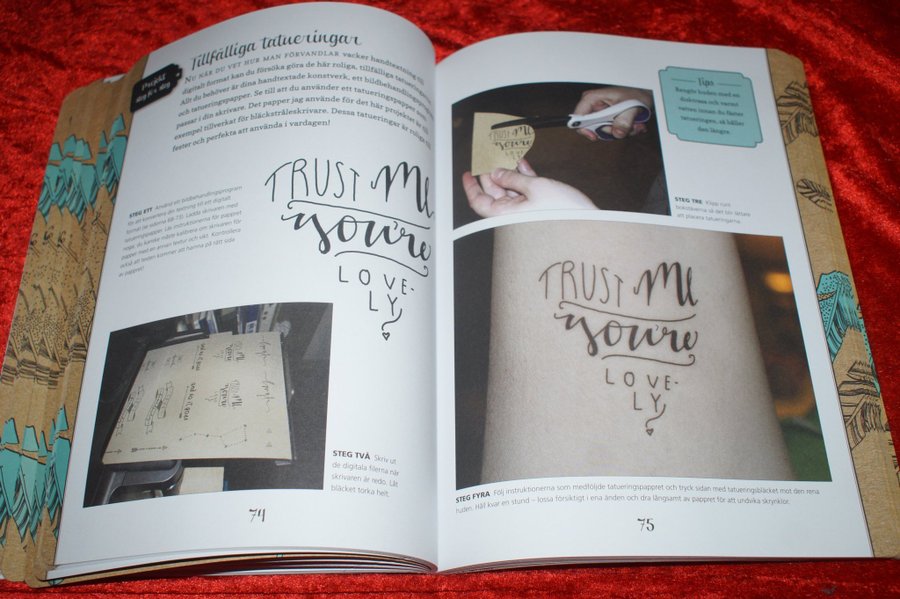 Projekt
steg för steg
Tillfälliga tatueringar
NU NÄR DU VET HUR MAN FÖRVANDLAR vacker handtextning till
digitalt format kan du försöka göra de här roliga, tillfälliga tatueringarna.
Allt du behöver är din handtextade konstverk, ett bildbehandlingsprogram
och tatueringspapper. Se till att du använder ett tatueringspapper som
passar i din skrivare. Det papper jag använde för det här projektet är till
exempel tillverkat för bläckstråleskrivare. Dessa tatueringar är roliga till
fester och perfekta att använda i vardagen!
TRUST Me
you're
LOVE-
LY
STEG ETT Använd ett bildbehandlingsprogram
för att konvertera din textning till ett digitalt
format (se sidorna 68-73). Ladda skrivaren med
tatueringspapper. Läs instruktionerna för pappret
noga; du kanske måste kalibrera om skrivaren för
papper med en annan textur och vikt. Kontrollera
också att texten kommer att hamna på rätt sida
av pappret!
STEG TVÅ Skriv ut
de digitala filerna när
skrivaren är redo. Låt
bläcket torka helt.
74
TRUST Me
you're
Tips
Rengör huden med en
disktrasa och varmt
vatten innan du fäster
tatueringen, så håller
den längre.
STEG TRE Klipp runt
bokstäverna så det blir lättare
att placera tatueringarna.
TRUST Me
you're
LOVE-
LY
STEG FYRA Följ instruktionerna som medföljde tatueringspappret och tryck sidan med tatueringsbläcket mot den rena
huden. Håll kvar en stund – lossa försiktigt i ena änden och dra långsamt av pappret för att undvika skrynklor.
75